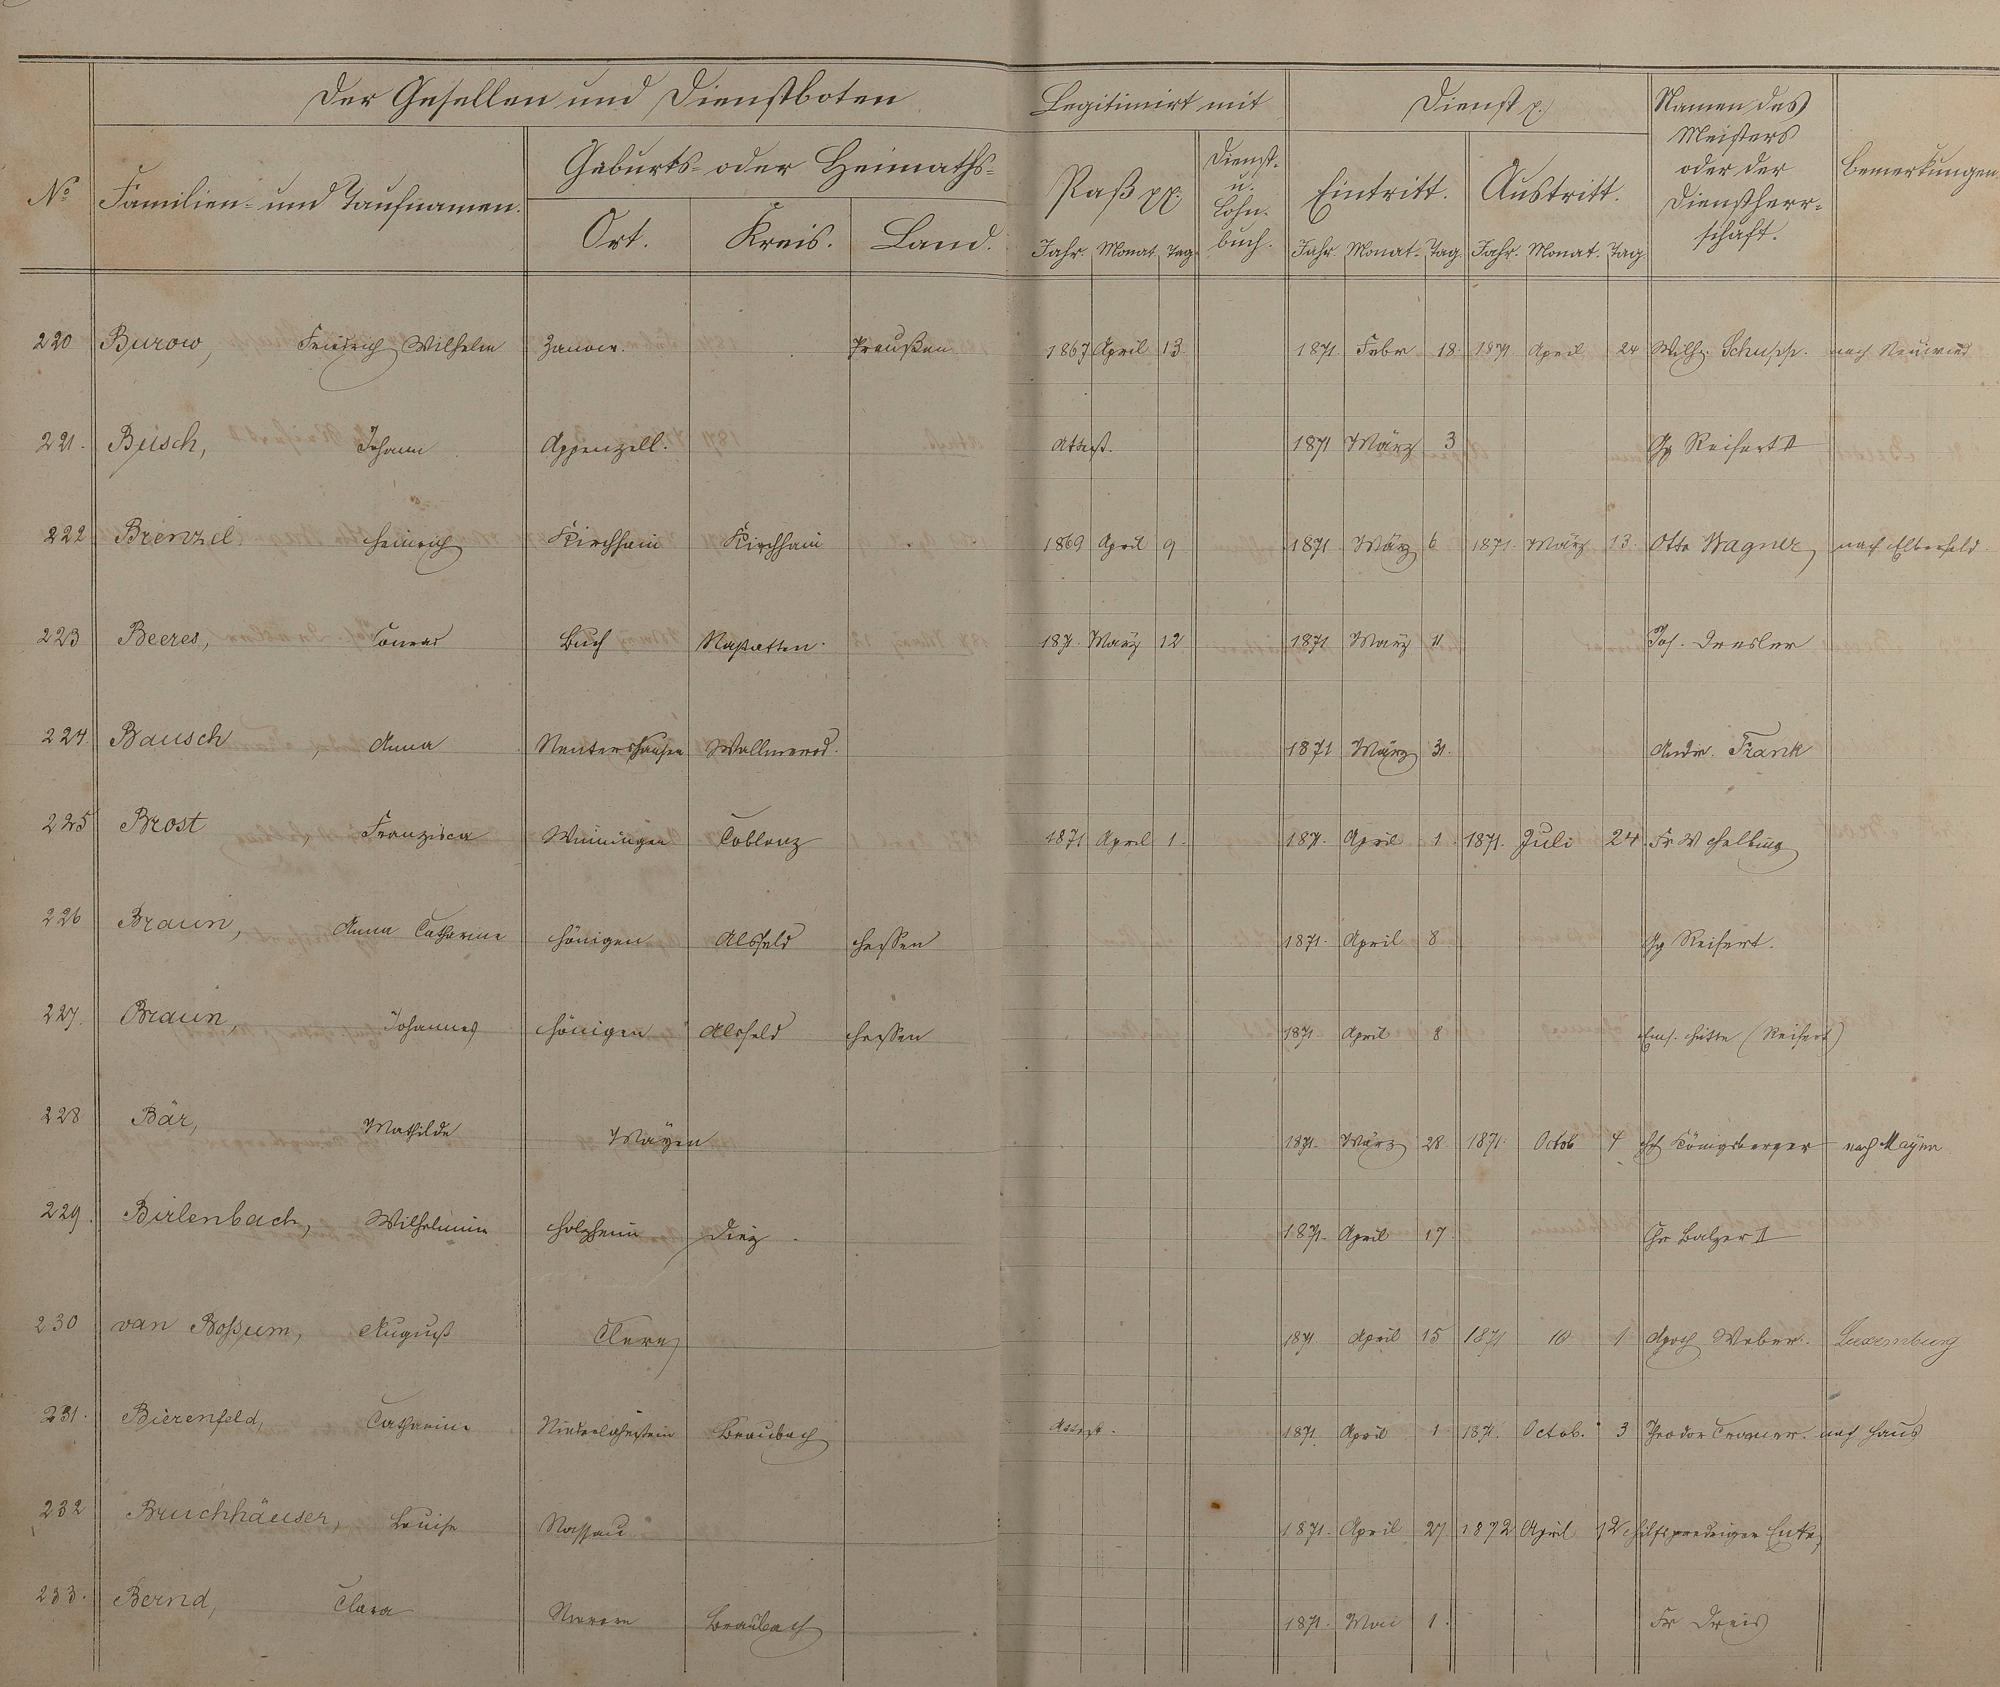 Der Gesellen und Dienstboten
Legitimirt mit
Dienst p.
Namen des Meisters oder der Dienstherr=schaft.
Bemerkungen
No
Familien- und Taufnamen.
Geburts- oder Heimaths-
Ort. Kreis. Land.
Paß pp.
Dienst- u. Lohn-buch.
Eintritt. Austritt.
Jahr. Monat Tag. Jahr. Monat. Tag. Jahr. Monat. Tag
220 Burow, Friedrich Wilhelm Zanow. Preußen 1867 April 13 1871. Febr 18. 1871 April 24 Wilh. Schupp. nach Neuwied
221. Beisch, Johann Appenzell. Attest. 1871 März 3 Gg Reifert II
222 Brenzel. Heinrich Kirchhain Kirchhain 1869 April 9 1871 März 6 1871. März 13. Otto Wagner, nach Elberfeld.
223 Beeres, Conrad Buch Nastätten. 1871. März 12 1871 März 11 Jos. Dresler
224. Bausch, Anna Nentershausen Wallmerod. 1871 März 31. Andr. Frank
225 Brost, Franzisca Winningen Coblenz 1871 April 1. 1871. April 1. 1871. Juli 24. Fr W Helbing
226 Braun, Anna Catharine Hönigen Alsfeld Hessen 1871. April 8 Gg Reifert.
227. Braun, Johannes Hönigen Alsfeld Hessen 1871. April 8 Ems. Hütte (Reifert)
228 Bär, Mathilde Mayen 1871. März 28. 1871. Octob 4 Königsberger nach Mayen
229. Birlenbach, Wilhelmine Holzheim Diez. 1871. April 17. Chr Balzer II
230 van Bossum, August Cleve 1871. April 15 1871 10 1 Apoth Weber. Luxemburg
231. Bierenfeld, Catharine Niederlahnstein Braubach Attest. 1871. April 1 1871. Octob. 3 Theodor Cramer. nach Haus
232 Bruchhäuser, Louise Nassau 1871. April 27 1872 April 12 Hilfsprediger Enke,
233. Bernd, Clara Nievern Braubach 1871. Mai 1. Fr Dreis